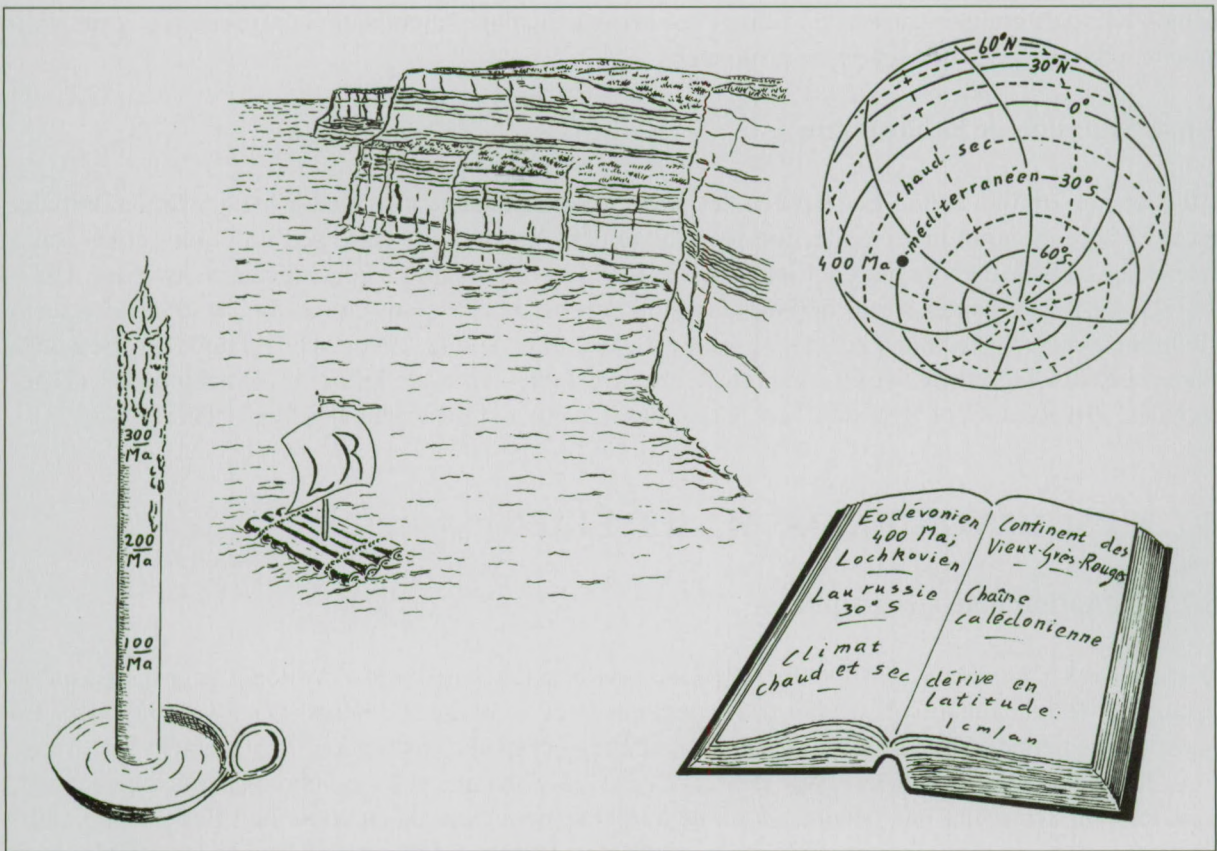 60°N
30°N
0°
chaud-sec
méditerranéen-30°S
400 Ma
60°S
300
Ma
200
Ma
100
Ma
LR
Eodévonien
400 Ma;
Lochkovien
Laurussie
30° S
Climat
chaud et sec
Continent des
Vieux-Grès-Rouges
Chaîne
calédonienne
dérive en
latitude:
1 cm/an